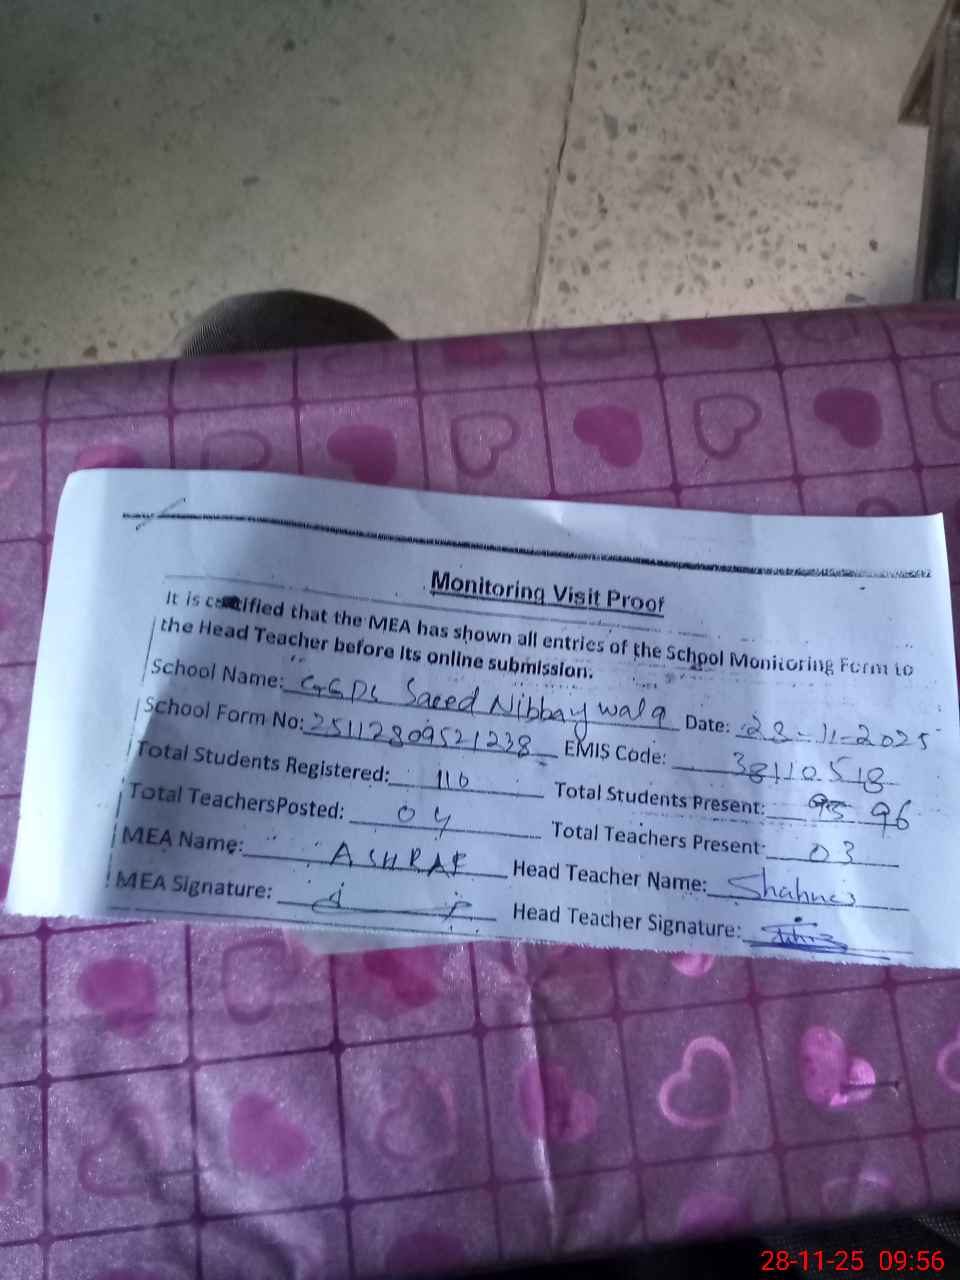 Monitoring Visit Proof
It is certified that the MEA has shown all entries of the School Monitoring Form to
the Head Teacher before its online submission.
School Name: GGPS Saeed Nibbay wala Date: 28-11-2025
School Form No: 25112809521238 EMIS Code: 38110518
Total Students Registered: 110 Total Students Present: 96
Total TeachersPosted: 04 Total Teachers Present: 03
MEA Name: ASHRAF Head Teacher Name: Shahnaz
MEA Signature: Head Teacher Signature:
28-11-25 09:56